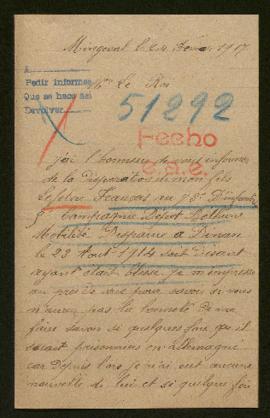 Mingoval le 24 Fevrier 1917
A
Pedir informes
Que se haca
Devolver
Le Roi
51292
Fecho
j'ai l'honneur de vous informer
de la Disparation de mon fils
François au 73e D'infanterie
Compagnie Depot Bethune
Mobilité Disparu a Dinan
le 23 Aout 1914 soit disant
ayant était Blessé je m'empresse
au pres de vous pour savoir si vous
n'auriez pas la bonneté de me
faire savoir si quelques fois qu'il
serait prisonniers en Allemagne
car Depuis lors je n'ai eut aucune
nouvelle de lui et si quelque fois